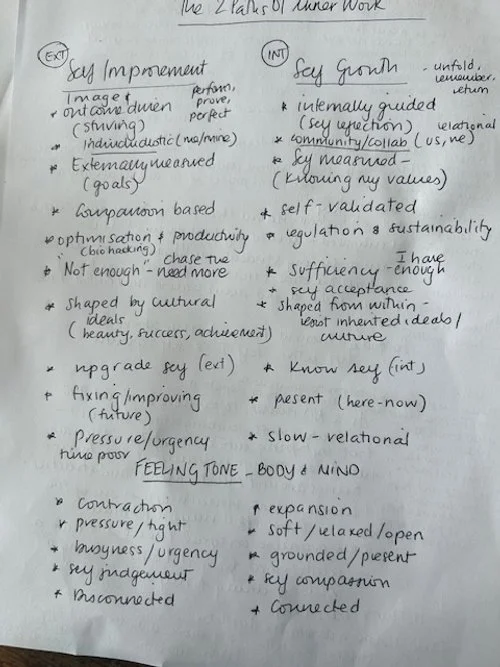 The 2 Paths of Inner Work
EXT
Self Improvement
Image &
* outcome driven
perform,
prove,
perfect
(striving)
* Individualistic (me/mine)
* Externally measured
(goals)
* Comparison based
* optimisation & productivity
(biohacking)
chase the
* "Not enough" - need more
* shaped by cultural
ideals
(beauty, success, achievement)
* upgrade self (ext)
* fixing/improving
(future)
* Pressure/urgency
time poor
INT
Self Growth
- unfold,
remember,
return
* internally guided
(self reflection)
relational
* community/collab (us, we)
* Self measured -
(knowing my values)
* self-validated
* regulation & sustainability
I have
* sufficiency - enough
* self acceptance
* shaped from within -
inherited ideals/
culture
* Know self (int)
* present (here-now)
* slow - relational
FEELING TONE - BODY & MIND
* contraction
* pressure/tight
* busyness/urgency
* self judgement
* Disconnected
* expansion
* soft/relaxed/open
* grounded/present
* self compassion
* Connected